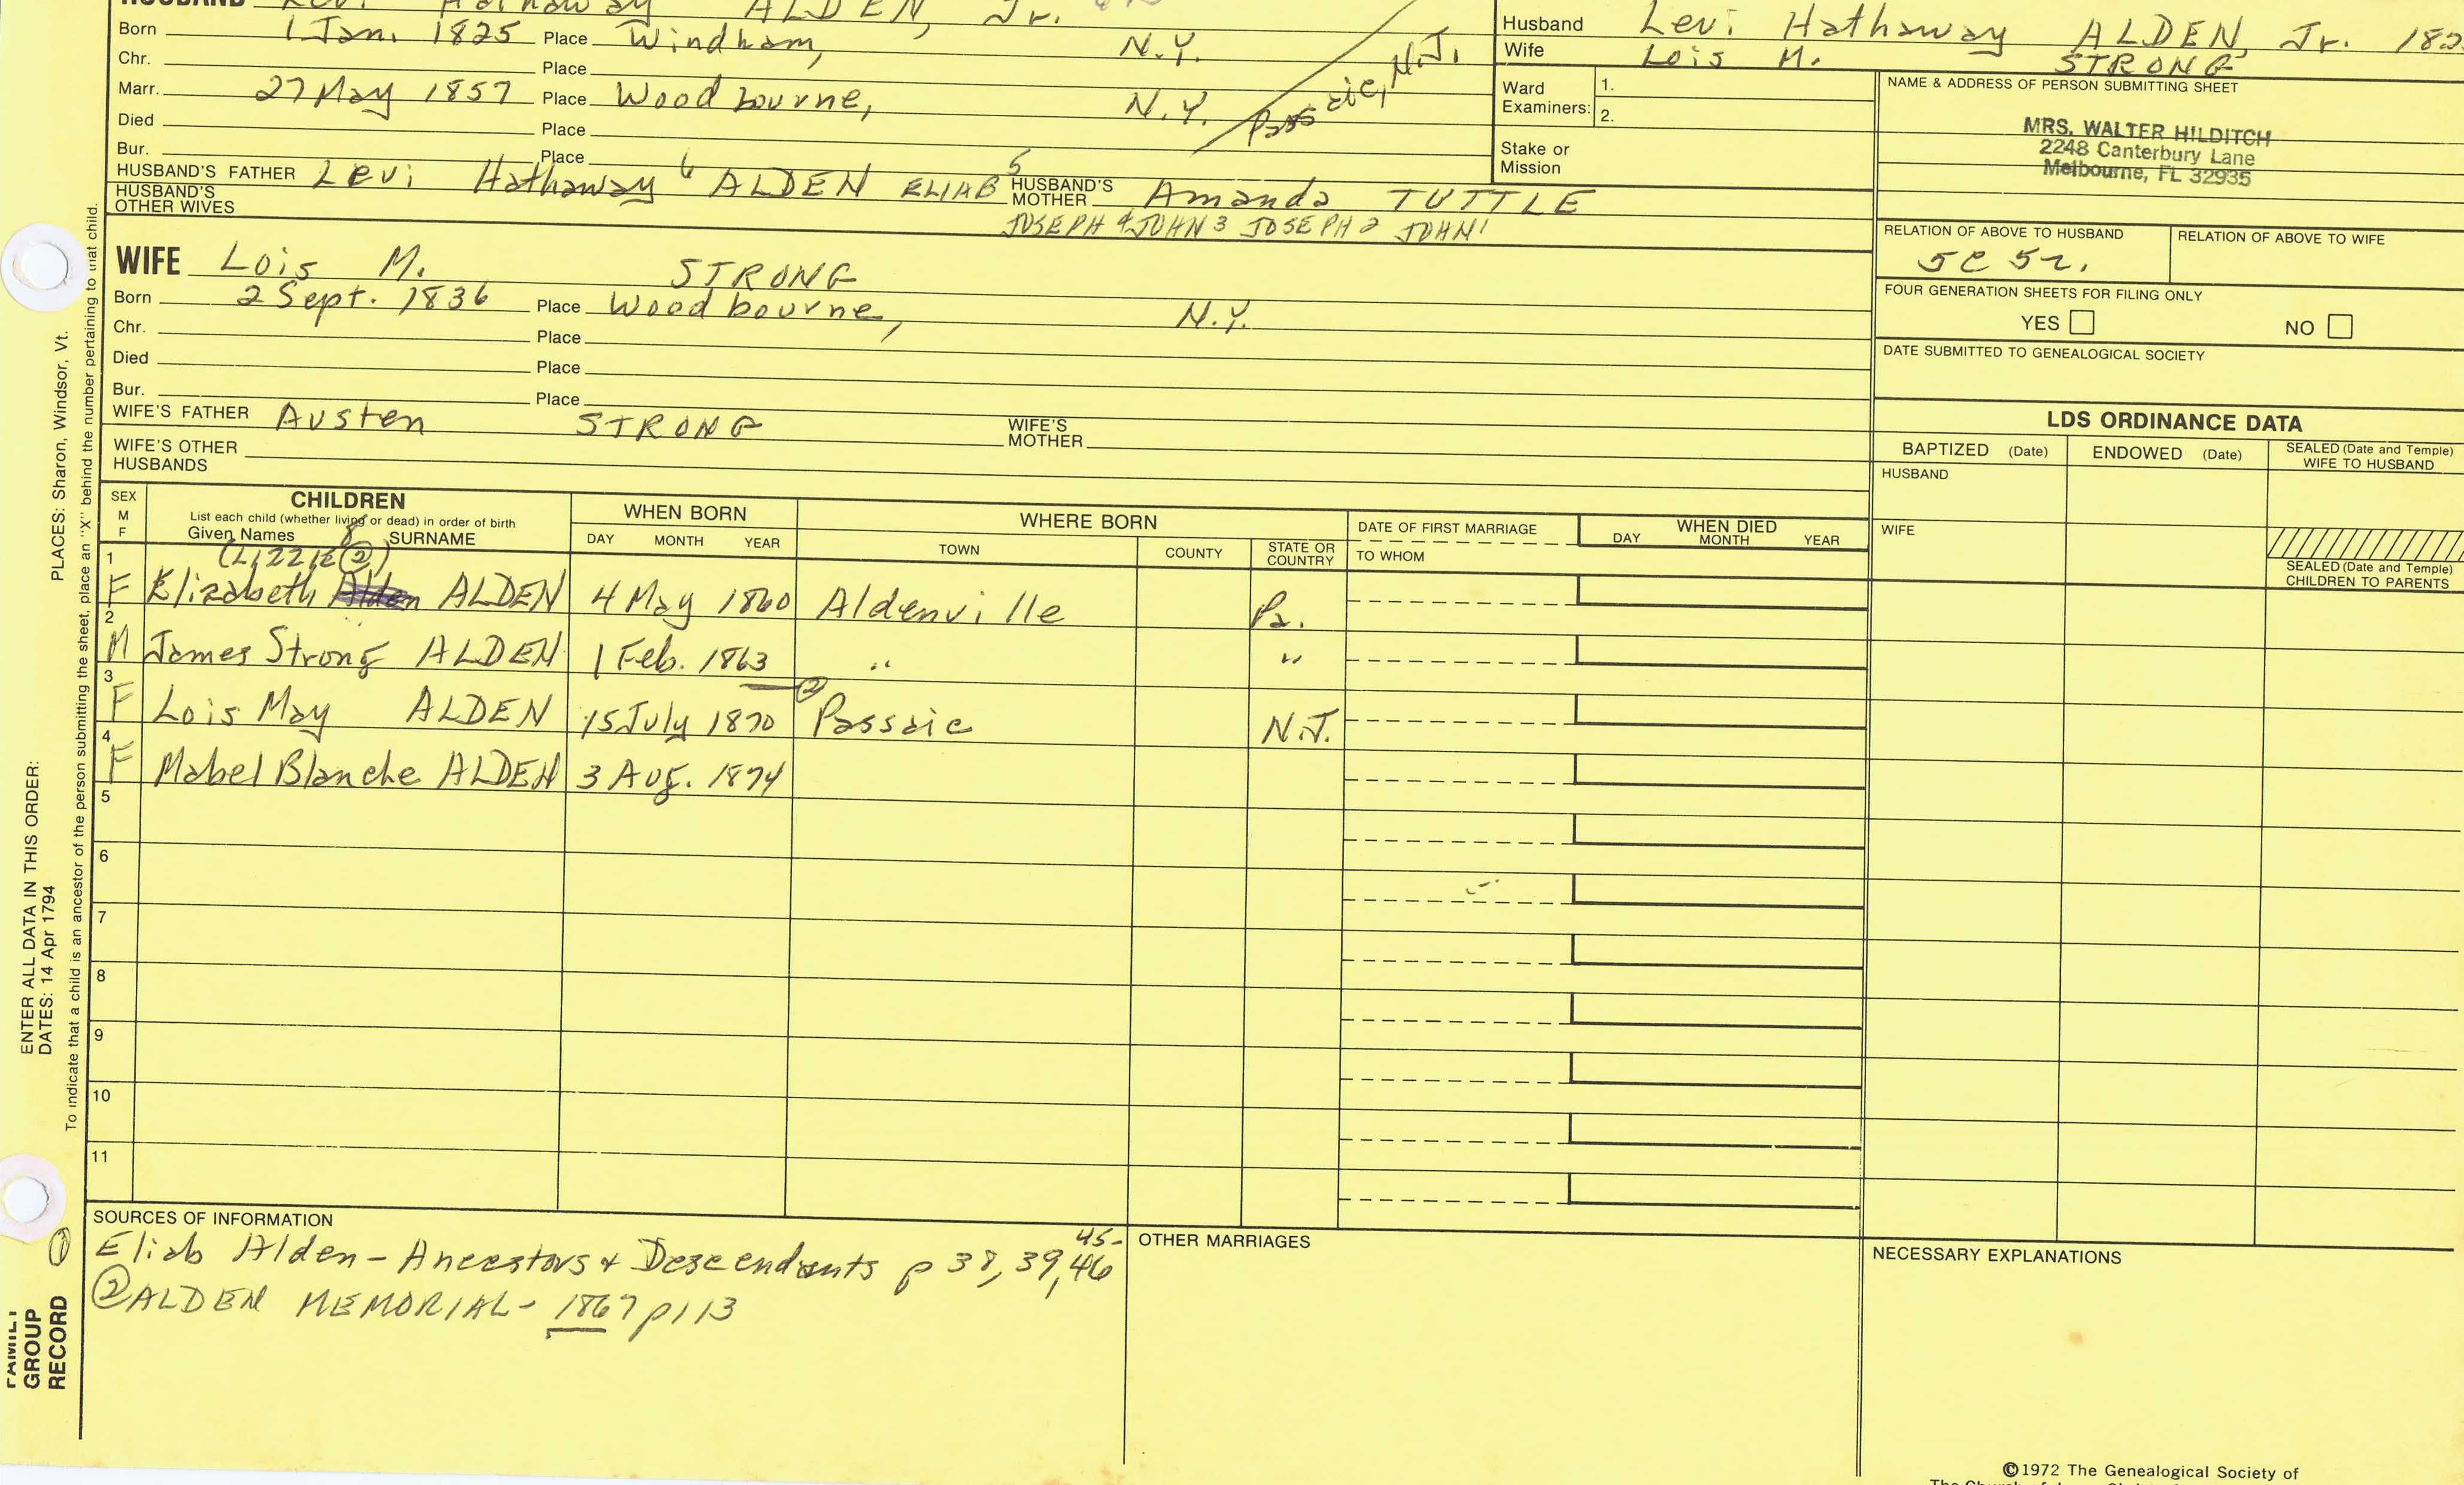 HUSBAND Levi Hathaway ALDEN, Jr.
Born 1 Jan. 1825 Place Windham, N.Y.
Chr. Place
Marr. 27 May 1857 Place Woodbourne, N.Y.
Died Place
Bur. Place
Passaic, N.J.
HUSBAND'S FATHER Levi Hathaway 6 ALDEN ELIAB 5 HUSBAND'S MOTHER Amanda TUTTLE
HUSBAND'S OTHER WIVES
JOSEPH 4 JOHN 3 JOSEPH 2 JOHN 1
Husband Levi Hathaway ALDEN, Jr. 182
Wife Lois M. STRONG
Ward Examiners: 1.
2.
Stake or Mission
NAME & ADDRESS OF PERSON SUBMITTING SHEET
MRS. WALTER HILDITCH
2248 Canterbury Lane
Melbourne, FL 32935
RELATION OF ABOVE TO HUSBAND
5C 5r.
RELATION OF ABOVE TO WIFE
FOUR GENERATION SHEETS FOR FILING ONLY
YES NO
DATE SUBMITTED TO GENEALOGICAL SOCIETY
WIFE Lois M. STRONG
Born 2 Sept. 1836 Place Woodbourne, N.Y.
Chr. Place
Died Place
Bur. Place
WIFE'S FATHER Austen STRONG WIFE'S MOTHER
WIFE'S OTHER HUSBANDS
LDS ORDINANCE DATA
BAPTIZED (Date) ENDOWED (Date) SEALED (Date and Temple) WIFE TO HUSBAND
HUSBAND
WIFE
SEALED (Date and Temple) CHILDREN TO PARENTS
SEX M F
CHILDREN
List each child (whether living or dead) in order of birth
Given Names 8 SURNAME
WHEN BORN
DAY MONTH YEAR
WHERE BORN
TOWN COUNTY STATE OR COUNTRY
DATE OF FIRST MARRIAGE
TO WHOM
WHEN DIED
DAY MONTH YEAR
(LIZZIE ②)
1 F Elizabeth Alden ALDEN 4 May 1860 Aldenville Pa.
2 M James Strong ALDEN 1 Feb. 1863 ② " "
3 F Lois May ALDEN 15 July 1870 Passaic N.J.
4 F Mabel Blanche ALDEN 3 Aug. 1874
5
6
7
8
9
10
11
SOURCES OF INFORMATION
① Eliab Alden - Ancestors & Descendants p 38, 39, 45-46
② ALDEN MEMORIAL - 1867 p 113
OTHER MARRIAGES
NECESSARY EXPLANATIONS
©1972 The Genealogical Society of
ENTER ALL DATA IN THIS ORDER:
DATES: 14 Apr 1794
PLACES: Sharon, Windsor, Vt.
To indicate that a child is an ancestor of the person submitting the sheet, place an "X" behind the number pertaining to that child.
FAMILY
GROUP
RECORD